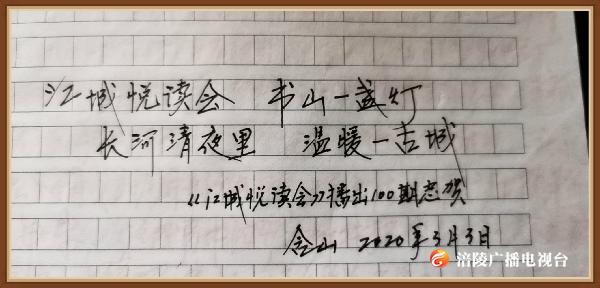 江城悦读会 书山一盏灯
长河清夜里 温暖一古城
《江城悦读会》播出100期志贺
金山 2020年3月3日
涪陵广播电视台